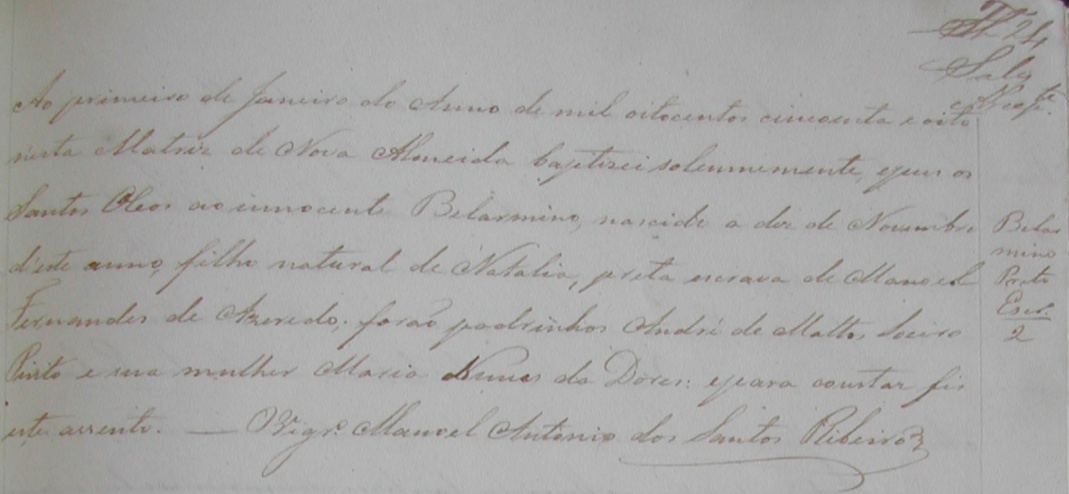 24
Ao primeiro de Janeiro do Anno de mil oitocentos cincoenta e oito
nesta Matriz de Nova Almeida baptisei solemnemente, e puz os
Santos Oleos ao innocente Belarmino, nascido a dez de Novembro
d'este anno, filho natural de Natalia, preta escrava de Manoel
Fernandes de Azeredo. forão padrinhos André de Mattos Loeiro
Pinto e sua mulher Maria Nunes das Dores: e para constar fis
este assento. — Vigr.º Manoel Antonio dos Santos Ribeiro
Belar
mino
Preto
Escr.
2